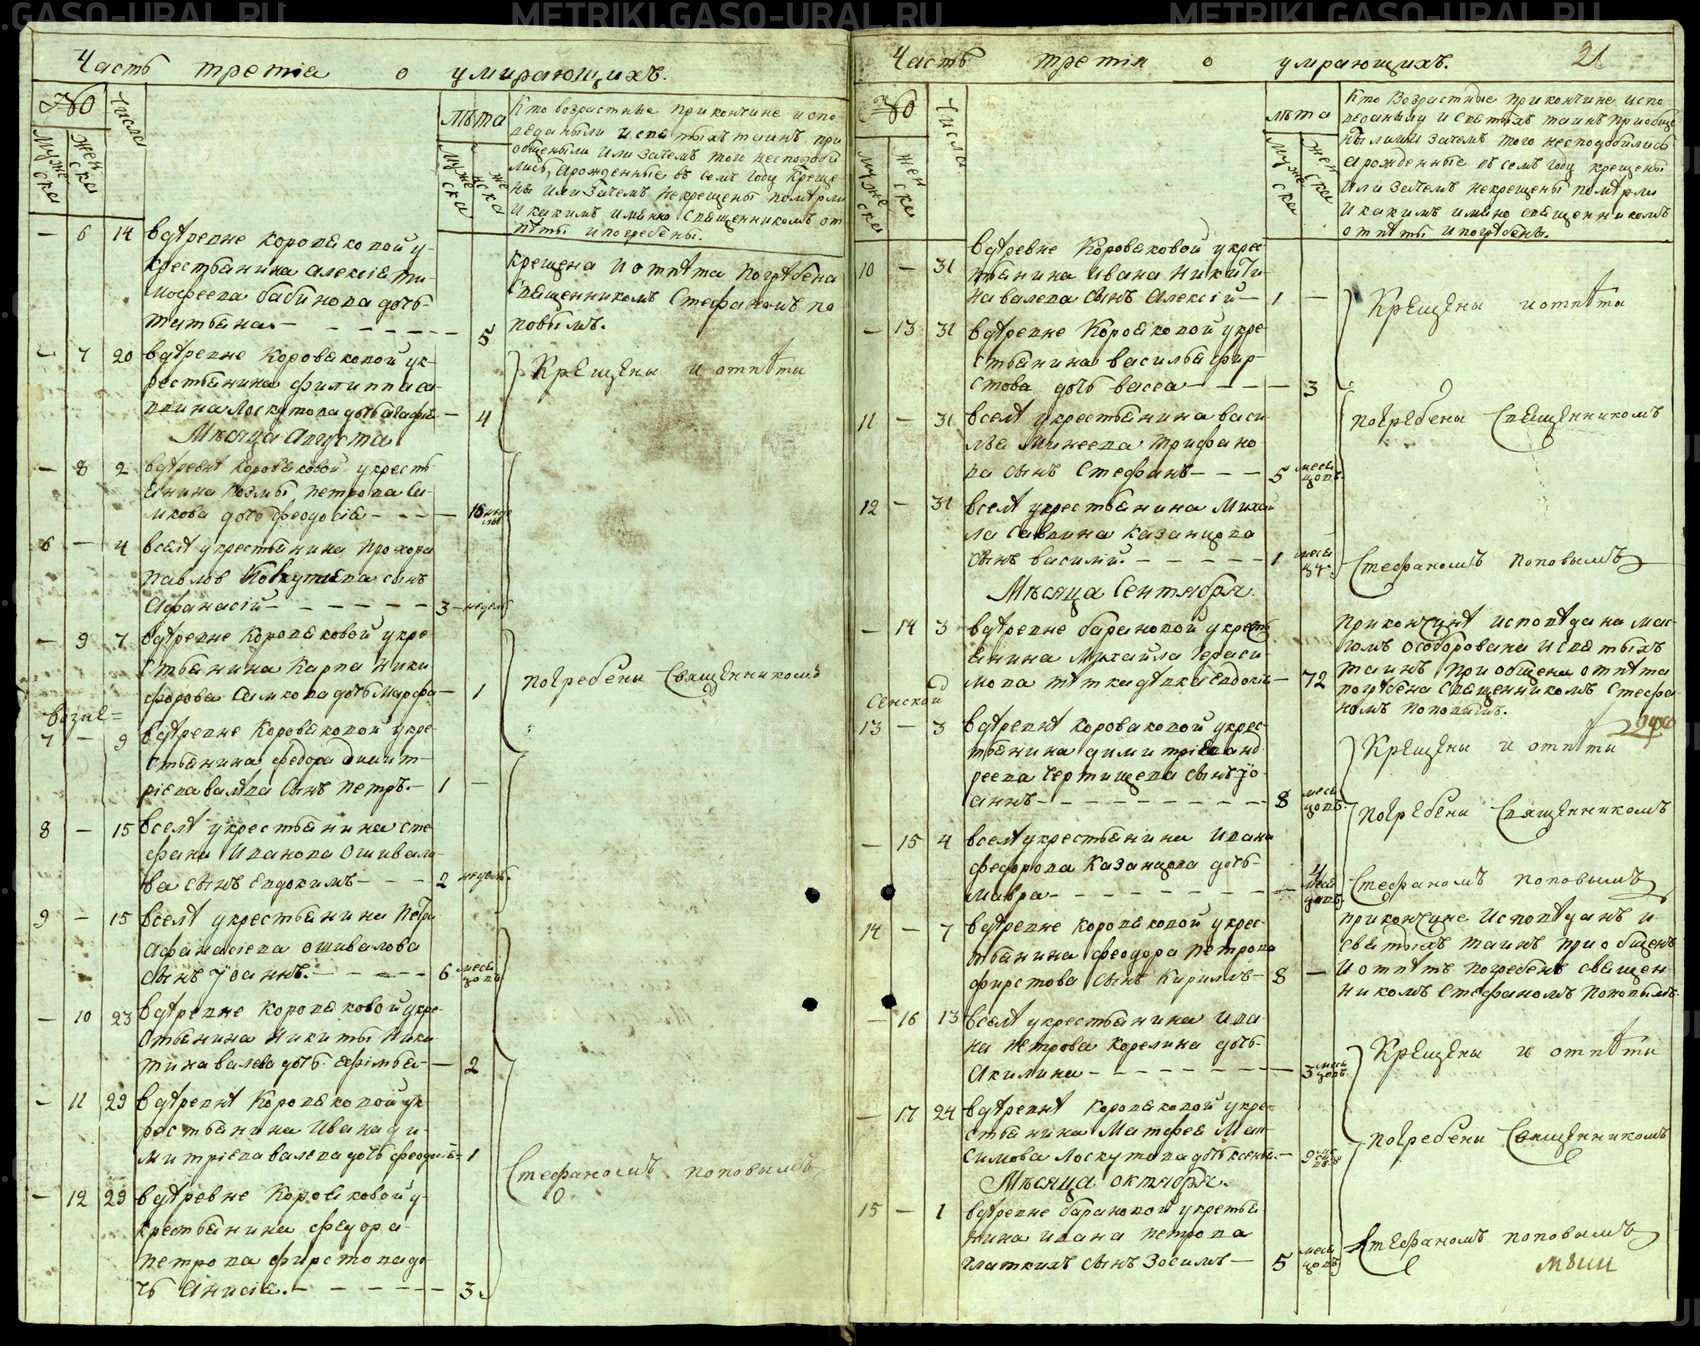 METRIKI.GASO-URAL.RU
METRIKI.GASO-URAL.RU
Часть третіа о умирающихъ.
№
Числа
лѣта
муже
ска
жен
ска
муже
ска
же
нска
Кто возрастные при кончине испо
веданы ли и святыхъ таинъ при
общены или зачемъ того несподоби
лись, а рожденные въ семъ году креще
ны или зачемъ некрещены помѣрли
и какимъ имянно священникомъ от
пѣты и погребены.
— 6 14 вдѣревне Коровяковой у
крестьянина Алексія Ти
мофеева бабинова дочь
татьяна. — 5
крещена и отпѣта погребена
священникомъ Стефаномъ по
повымъ.
— 7 20 вдѣревне Коровяковой ук
рестьянина филиппа са
ввина Лоскутова дочь агафія — 4
Крещены и отпѣты
Мѣсяца Августа
— 8 2 вдѣревнѣ Коровяковой укресть
янина козмы петрова са
мкова дочь феодосія — 16 недѣль
6 — 4 вселѣ укрестьянина прохора
павлов сынъ
Афанасій — 3 — недели
— 9 7 вдѣревне Коровяковой укре
стьянина Карпа Ники
форова Самкова дочь Марфа — 1
погребены Священникомъ
7 — 9 вдѣревне Коровяковой укре
стьянина федора Димит
ріева валѣва сынъ петръ. — 1 —
8 — 15 вселѣ укрестьянина сте
фана Иванова Ошивало
ва сынъ Евдокимъ — 2 недели
9 — 15 вселѣ укрестьянина петра
Афанасіева ошивалова
сынъ Іоаннъ. — 6 меся
цовъ
— 10 23 вдѣревне Коровяковой укре
стьянина Никиты Ники
тина валева дочь ефимья — 2
— 11 29 вдѣревнѣ Коровяковой ук
рестьянина Ивана ди
митріева валева дочь феодосія — 1
Стефаномъ поповымъ
— 12 29 вдѣревне Коровяковой у
крестьянина федора
петрова фирстова до
чь Анисія. — 3
Часть третія о умирающихъ.
21
№
Числа
лѣта
муже
ска
жен
ска
муже
ска
жен
ска
Кто Возрастные при кончине испо
веданы ли и святыхъ таинъ приобще
ны ли или зачемъ того несподобились
а рожденные въ семъ году крещены
или зачемъ некрещены помѣрли
и какимъ имянно священникомъ
отпѣты и погребены.
10 — 31 вдѣревне Коровяковой укрес
тьянина Ивана Никити
на валева сынъ Алексій — 1 —
Крещены и отпѣты
— 13 31 вдѣревне Коровяковой укре
стьянина василья фир
стова дочь васса — 3
11 — 31 вселѣ укрестьянина васи
лья Минеева Трифано
ва сынъ Стефанъ — 5 меся
цовъ
погребены Священникомъ
12 — 31 вселѣ укрестьянина Михай
ла Саввина Казанцова
сынъ василій. — 1 меся
цъ
Стефаномъ поповымъ
Мѣсяца Сентября.
— 14 3 вдѣревне барановой укресть
янина Михайла Гераси
мова — 72
При кончинѣ исповѣдана мас
ломъ особорована и святыхъ
таинъ приобщена отпѣта
погребена священникомъ Стефа
номъ поповымъ.
13 — 3 вдѣревнѣ Коровяковой укрес
тьянина димитрія анд
реева Чертищева сынъ Іо
аннъ — 8 меся
цовъ
Крещены и отпѣты
погребены Священникомъ
— 15 4 вселѣ укрестьянина Ивана
федорова Казанцова дочь
Мавра — 4 меся
цовъ
Стефаномъ поповымъ
14 — 7 вдѣревне Коровяковой укрес
тьянина феодора петрова
фирстова сынъ Кирилъ — 8 —
При кончине исповѣданъ и
святыхъ таинъ приобщенъ
и отпѣтъ погребенъ священ
никомъ Стефаномъ поповымъ
— 16 13 вселѣ укрестьянина Ива
на петрова Корелина дочь
Акилина — 3 меся
цовъ
Крещены и отпѣты
— 17 24 вдѣревнѣ Коровяковой укре
стьянина Матфея Мак
симова Лоскутова дочь ксенія — 9
погребены Священникомъ
Мѣсяца октября.
15 — 1 вдѣревне барановой укрестья
нина ивана петрова
гладкихъ сынъ Зосимъ — 5 меся
цовъ
Стефаномъ поповымъ